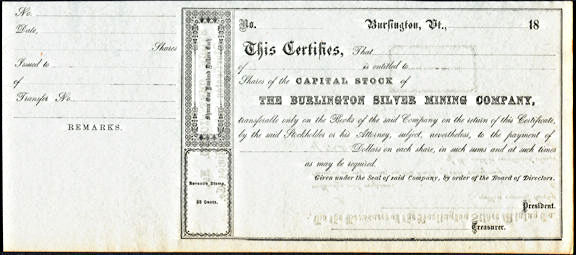 No.
Date,
Shares
Issued to
of
Transfer No.
REMARKS.
Shares One Hundred Dollars Each.
Revenue Stamp.
25 Cents.
No. Burlington, Vt., 18
This Certifies, That
of is entitled to
Shares of the CAPITAL STOCK of
THE BURLINGTON SILVER MINING COMPANY,
transferable only on the Books of the said Company on the return of this Certificate,
by the said Stockholder or his Attorney, subject, nevertheless, to the payment of
Dollars on each share, in such sums and at such times
as may be required.
Given under the Seal of said Company, by order of the Board of Directors.
President.
Treasurer.